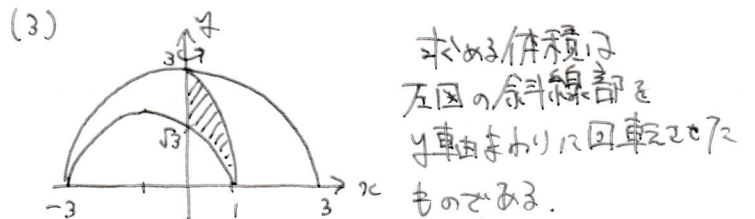 (3)
y
3
√3
-3
1
3
x
求める体積は
左図の斜線部を
y軸まわりに回転させた
ものである.